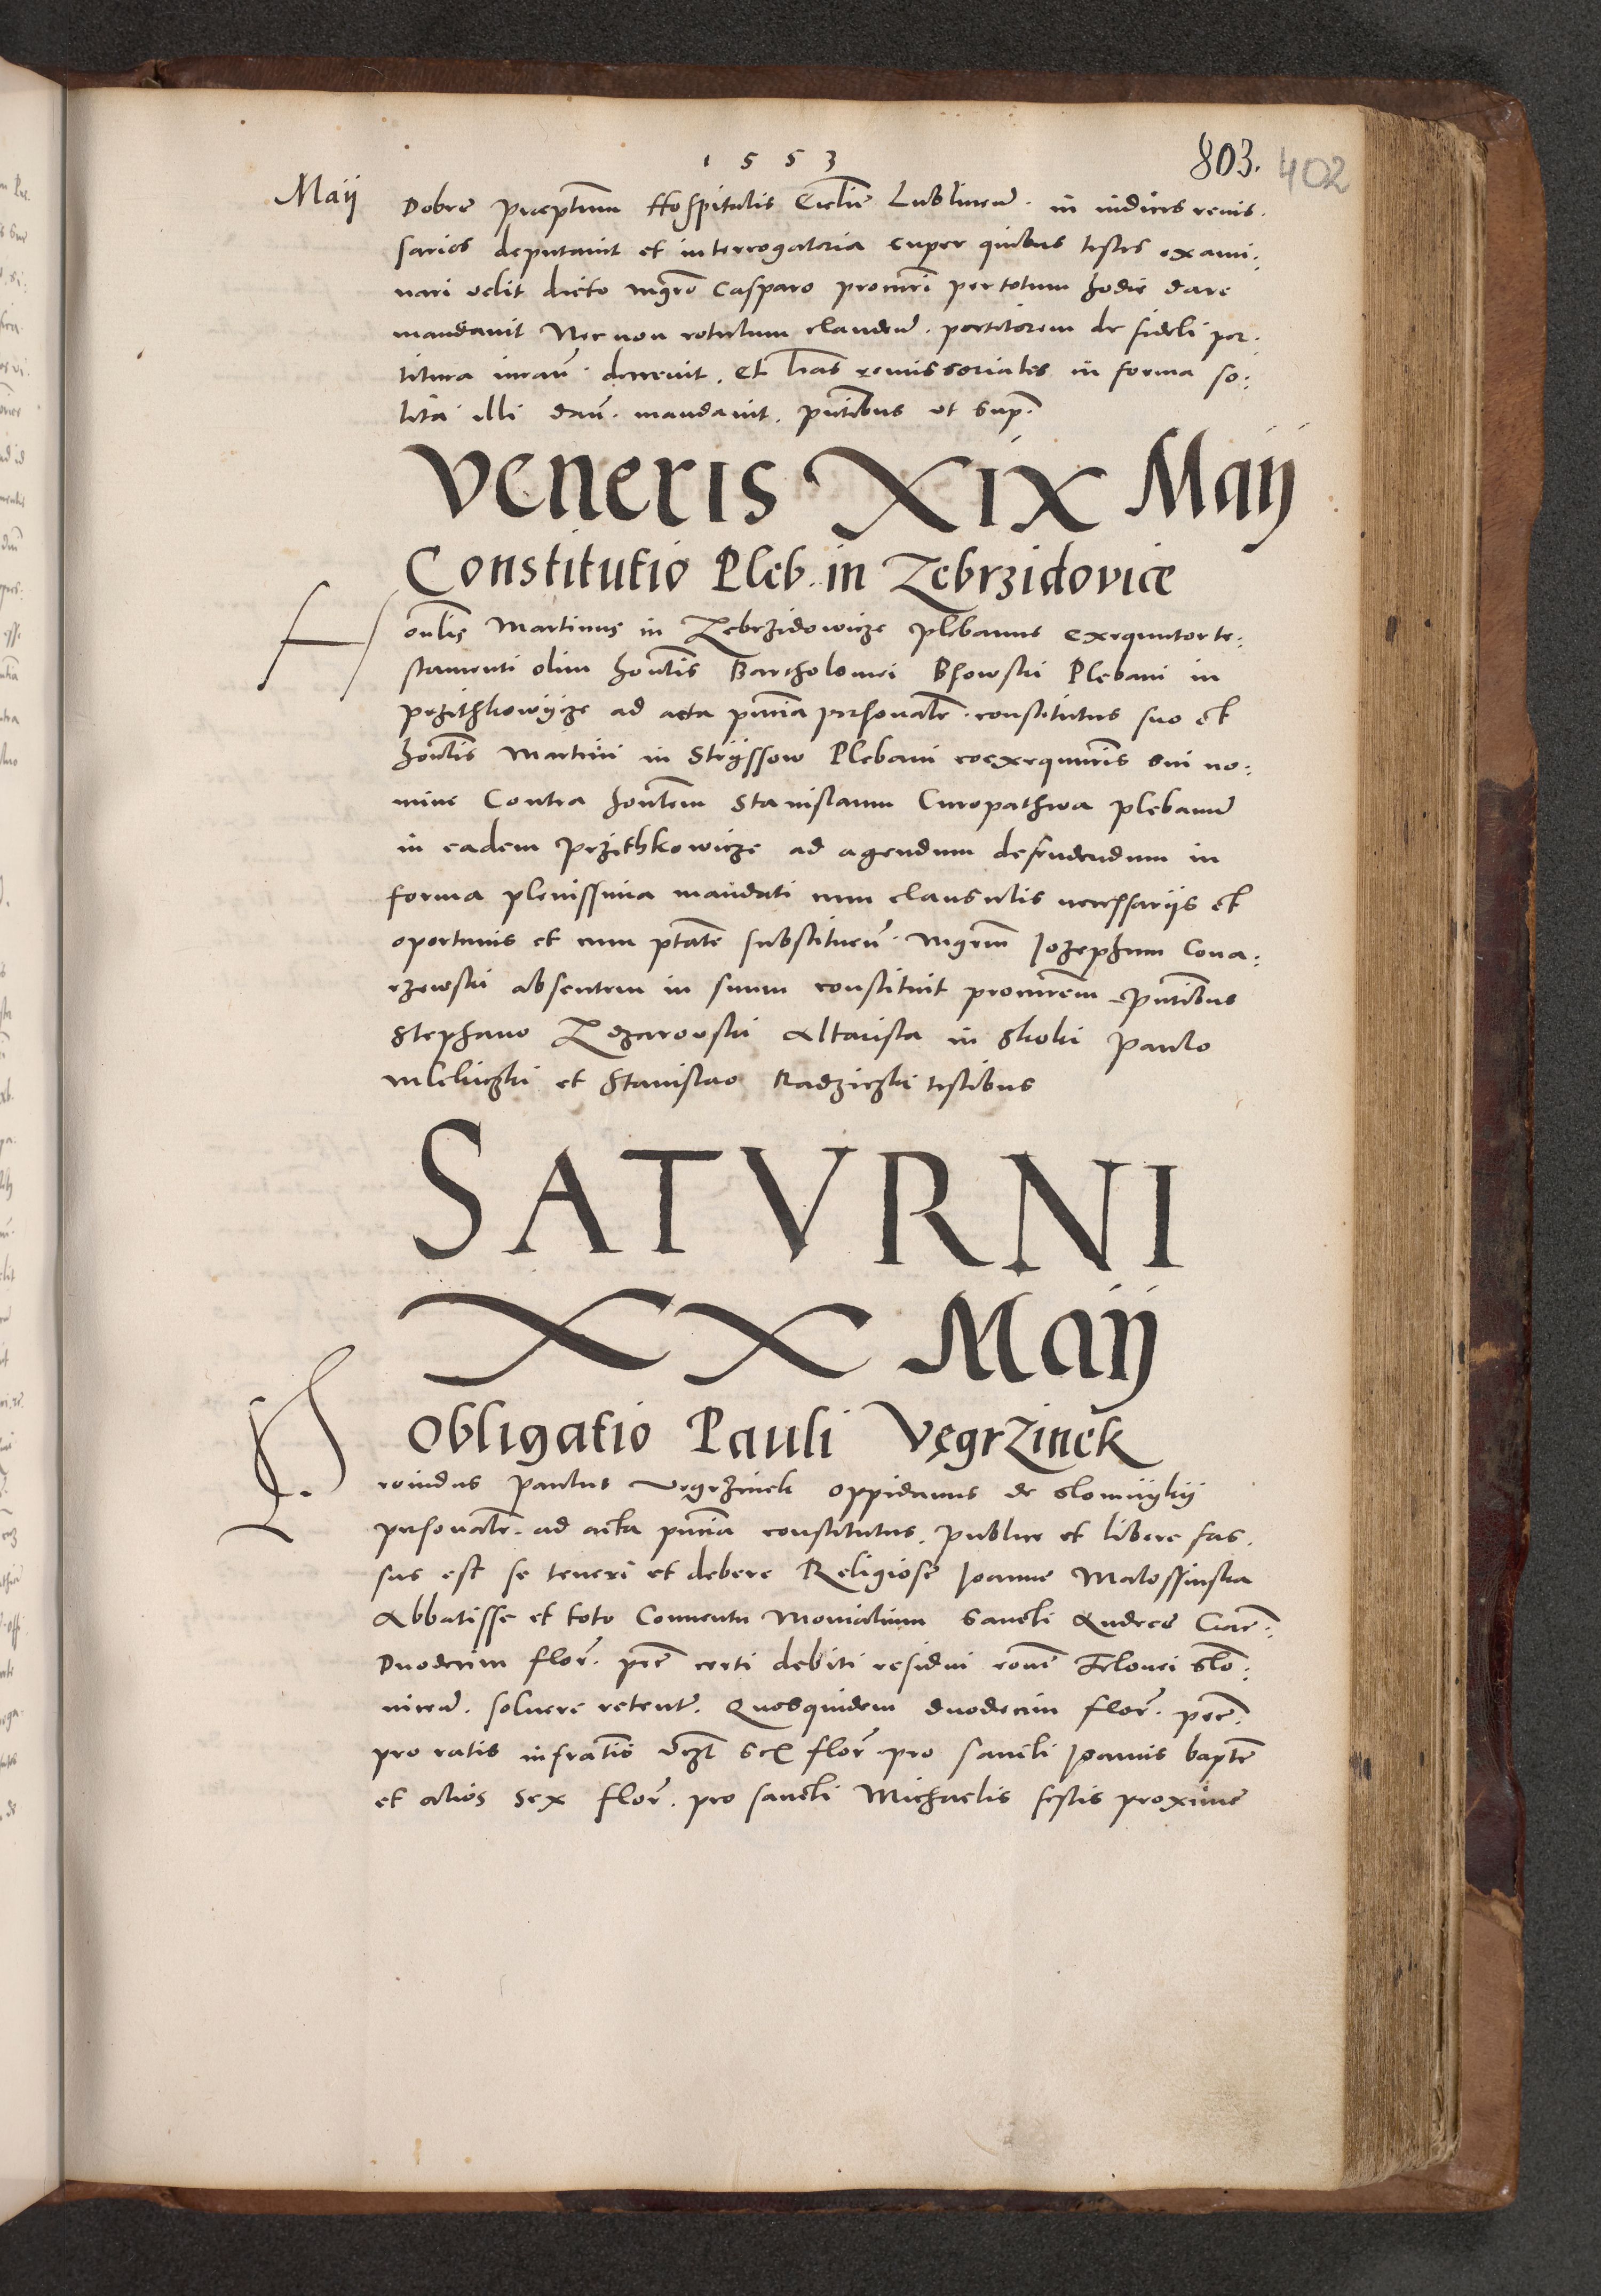 1553
803. 402
Maij
Dobre preptum Hospitalis Ecclie Lublineñ. in iudices remis-
sarios deputavit et interrogatoria super quibus testes exami:
nari velit dicto mgro Casparo procuri per totum hodie dare
mandavit Nec non rotulum claudeñ. portitorem de fideli por-
titura iurañ. decrevit. Et lras remissoriales in forma so:
lita illi dañ. mandavit. pñtibus ut sup.
Veneris XIX Maij
Constitutio Pleb. in Zebrzidovice
Honlis Martinus in Zebrzidowicze plebanus exequutor te:
stamenti olim honlis Bartholomei Plebani in
przithkowijcze ad acta pñtia personalr. constitutus suo et
honlis Martini in Strijssow Plebani coexequuris sui no:
mine Contra honlem Stanislaum Curopathwa plebanum
in eadem przithkowicze ad agendum defendendum in
forma plenissima mandati cum clausulis necessarijs et
oportunis et cum ptate substitueñ. mgrum Jozephum Cona:
rzewski absentem in suum constituit procurem pñtibus
Stephano altarista in Skoki Paulo
mlehiczki et Stanislao Radziczki testibus
SATVRNI
XX Maij
Obligatio Pauli Vęgrzinek
Providus Paulus Vęgrzinek oppidanus de Slomnijkij
personalr. ad acta pñtia constitutus. publice et libere fas-
sus est se teneri et debere Religiose Joanne Malossinska
Abbatisse et toto Conventu Monialium Sancti Andree Crac:
Duodecim flor. pec certi debiti residui roñe Telonei Slo:
miceñ. solvere retent. Quosquidem duodecim flor. pec.
pro ratis infratis vczt sex flor. pro sancti Joannis bapte
et alios sex flor. pro sancti Michaelis festis proxime